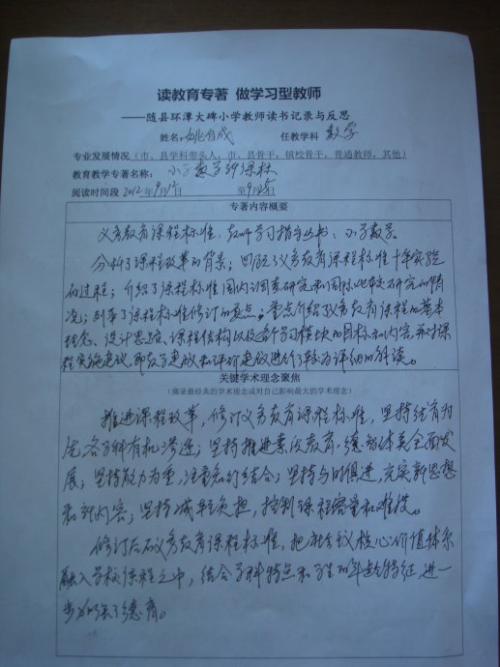 读教育专著 做学习型教师
——随县环潭大碑小学教师读书记录与反思
姓名: 任教学科 数学
专业发展情况(市、县学科带头人,市、县骨干,镇校骨干,普通教师,其他)
教育教学专著名称: 小学数学新课标
阅读时间段 2012年9月 第9周
专著内容概要
义务教育课程标准,教师学习指导丛书、小学数学
分析了课程改革的背景;回顾了义务教育课程标准十年实验
的过程;介绍了课程标准国内调查研究和国际比较研究的情
况;列举了课程标准修订的要点;重点介绍了义务教育课程的基本
理念、设计思路、课程结构以及各个学习模块的目标和内容,并对课
程实施建议,即教学建议和评价建议进行了较为详细的解读。
关键学术理念聚焦
(摘录最经典的学术理念或对自己影响最大的学术理念)
推进课程改革,修订义务教育课程标准,坚持德育为
先,各学科有机渗透;坚持推进素质教育,德智体美全面发
展,坚持能力为重,注重知行结合;坚持与时俱进,充实新思想
和新内容;坚持减轻负担,控制课程容量和难度。
修订后的义务教育课程标准,把社会主义核心价值体系
融入学校课程之中,结合学科特点和学生的年龄特征,进一
步加强了德育。